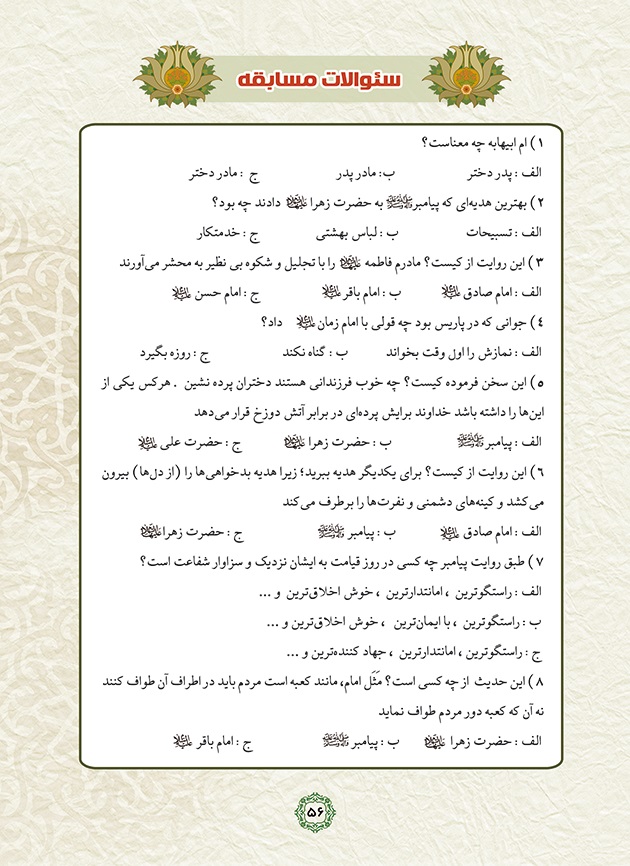 سئوالات مسابقه
۱) ام ابیهابه چه معناست؟
الف : پدر دختر ب: مادر پدر ج : مادر دختر
۲) بهترین هدیه‌ای که پیامبرﷺ به حضرت زهرا دادند چه بود؟
الف : تسبیحات ب : لباس بهشتی ج : خدمتکار
۳) این روایت از کیست؟ مادرم فاطمه را با تجلیل و شکوه بی نظیر به محشر می‌آورند
الف : امام صادق ب : امام باقر ج : امام حسن
۴) جوانی که در پاریس بود چه قولی با امام زمان داد؟
الف : نمازش را اول وقت بخواند ب : گناه نکند ج : روزه بگیرد
۵) این سخن فرموده کیست؟ چه خوب فرزندانی هستند دختران پرده نشین . هرکس یکی از
این‌ها را داشته باشد خداوند برایش پرده‌ای در برابر آتش دوزخ قرار می‌دهد
الف : پیامبرﷺ ب : حضرت زهرا ج : حضرت علی
۶) این روایت از کیست؟ برای یکدیگر هدیه ببرید؛ زیرا هدیه بدخواهی‌ها را (از دل‌ها) بیرون
می‌کشد و کینه‌های دشمنی و نفرت‌ها را برطرف می‌کند
الف : امام صادق ب : پیامبر ﷺ ج : حضرت زهرا
۷) طبق روایت پیامبر چه کسی در روز قیامت به ایشان نزدیک و سزاوار شفاعت است؟
الف : راستگوترین ، امانتدارترین ، خوش اخلاق‌ترین و ...
ب : راستگوترین ، با ایمان‌ترین ، خوش اخلاق‌ترین و ...
ج : راستگوترین ، امانتدارترین ، جهاد کننده‌ترین و ...
۸) این حدیث از چه کسی است؟ مَثَل امام، مانند کعبه است مردم باید در اطراف آن طواف کنند
نه آن که کعبه دور مردم طواف نماید
الف : حضرت زهرا ب : پیامبر ﷺ ج : امام باقر
۵۶